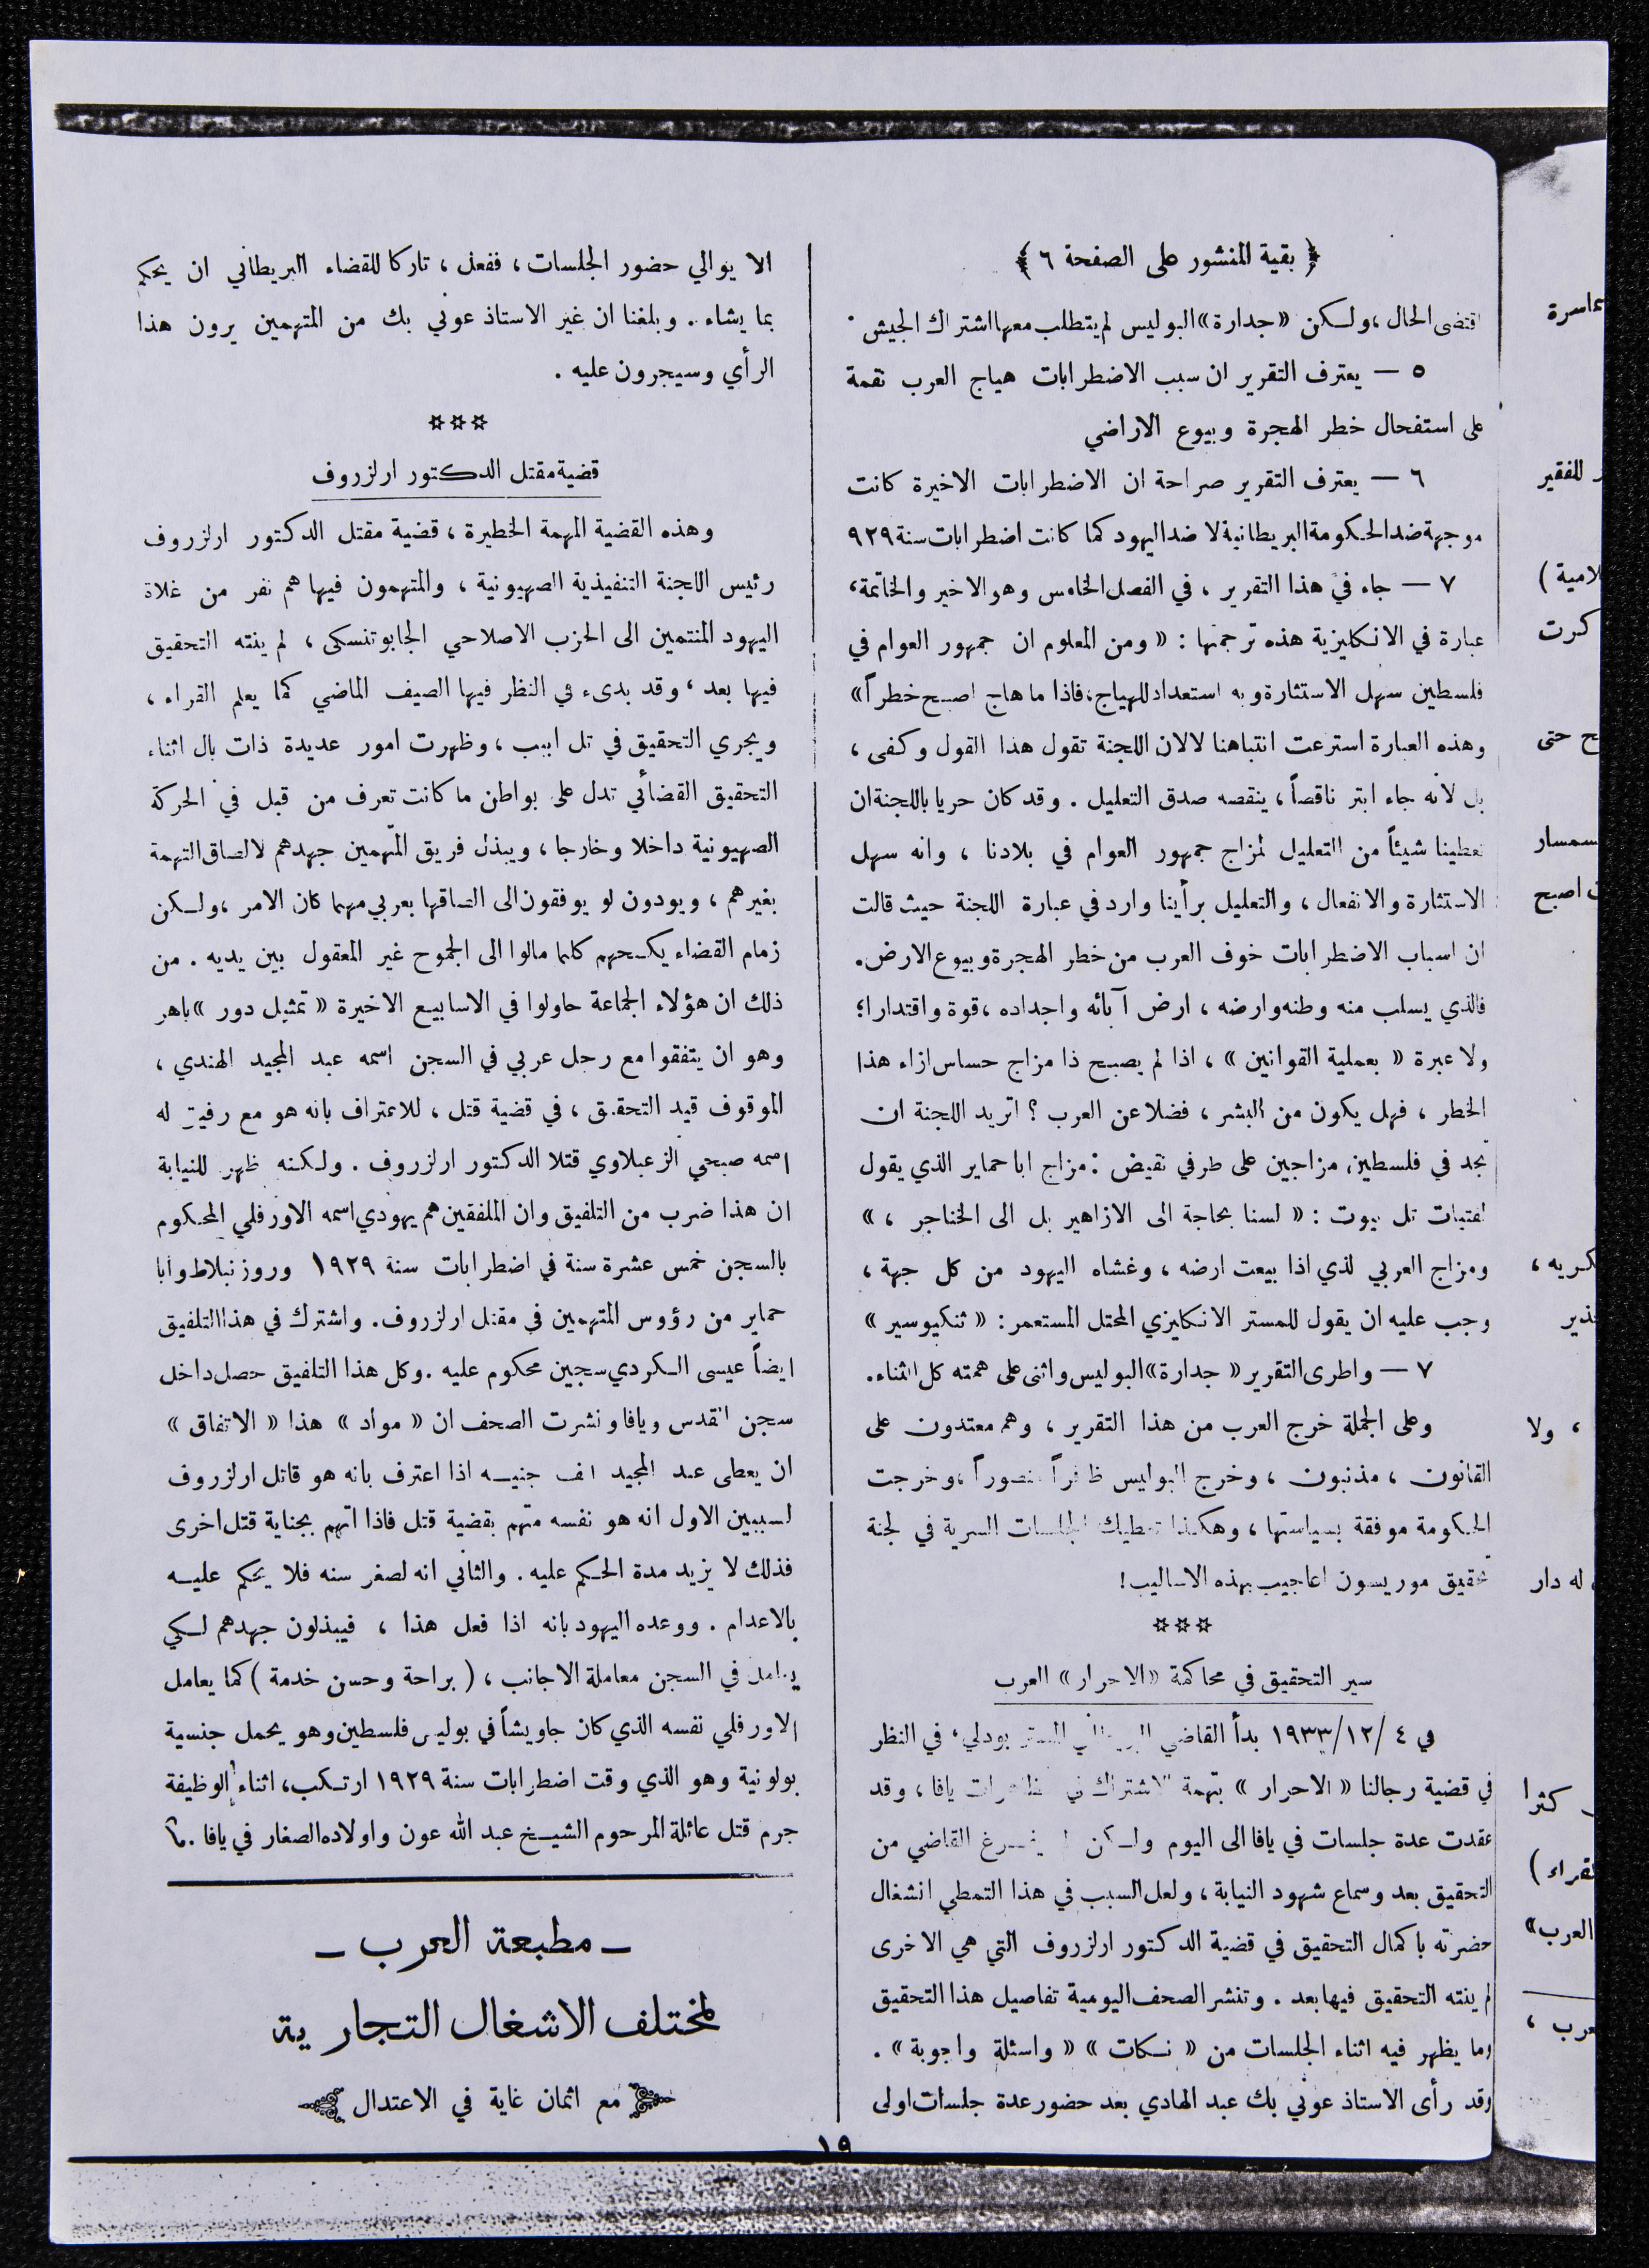 ﴿ بقية المنشور على الصفحة ٦ ﴾
اقتضى الحال ، ولكن «جدارة» البوليس لم يتطلب معها اشتراك الجيش ٠
٥ — يعترف التقرير ان سبب الاضطرابات هياج العرب نقمة
على استفحال خطر الهجرة وبيوع الاراضي
٦ — يعترف التقرير صراحة ان الاضطرابات الاخيرة كانت
موجهة ضد الحكومة البريطانية لا ضد اليهود كما كانت اضطرابات سنة ٩٢٩
٧ — جاء في هذا التقرير ، في الفصل الخامس وهو الاخير والخاتمة ،
عبارة في الانكليزية هذه ترجمتها : « ومن المعلوم ان جمهور العوام في
فلسطين سهل الاستثارة وبه استعداد للهياج ، فاذا ما هاج اصبح خطراً »
وهذه العبارة استرعت انتباهنا لا لان اللجنة تقول هذا القول وكفى ،
بل لانه جاء ابتر ناقصاً ، ينقصه صدق التعليل . وقد كان حريا باللجنة ان
تعطينا شيئاً من التعليل لمزاج جمهور العوام في بلادنا ، وانه سهل
الاستثارة والانفعال ، والتعليل برأينا وارد في عبارة اللجنة حيث قالت
ان اسباب الاضطرابات خوف العرب من خطر الهجرة وبيوع الارض .
فالذي يسلب منه وطنه وارضه ، ارض آبائه واجداده ، قوة واقتدارا ؛
ولا عبرة « بعملية القوانين » ، اذا لم يصبح ذا مزاج حساس ازاء هذا
الخطار ، فهل يكون من البشر ، فضلا عن العرب ؟ اتريد اللجنة ان
تجد في فلسطين مزاجين على طرفي نقيض : مزاج ابا حماير الذي يقول
لفتيات تل بيوت : « لسنا بحاجة الى الازاهير بل الى الخناجر ، »
ومزاج العربي لذي اذا بيعت ارضه ، وغشاه اليهود من كل جهة ،
وجب عليه ان يقول للمستر الانكليزي المحتل المستعمر : « ثنكيوسير »
٧ — واطرى التقرير « جدارة » البوليس واثنى على همته كل الثناء .
وعلى الجملة خرج العرب من هذا التقرير ، وهم معتدون على
القانون ، مذنبون ، وخرج البوليس ظافراً منصوراً ، وخرجت
الحكومة موفقة بسياستها ، وهكذا تعطيك الجلسات السرية في لجنة
تحقيق موريسون اعاجيب بهذه الاساليب !
☆☆☆
سير التحقيق في محاكمة « الاحرار » العرب
في ٤ /١٢ /١٩٣٣ بدأ القاضي البريطاني المستر بودلي ، في النظر
في قضية رجالنا « الاحرار » بتهمة الاشتراك في مظاهرات يافا ، وقد
عقدت عدة جلسات في يافا الى اليوم ولكن لم يفرغ القاضي من
التحقيق بعد وسماع شهود النيابة ، ولعل السبب في هذا التمطي انشغال
حضرته باكمال التحقيق في قضية الدكتور ارلزروف التي هي الاخرى
لم ينته التحقيق فيها بعد . وتنشر الصحف اليومية تفاصيل هذا التحقيق
وما يظهر فيه اثناء الجلسات من « نكات » « واسئلة واجوبة » .
وقد رأى الاستاذ عوني بك عبد الهادي بعد حضور عدة جلسات اولى
الا يوالي حضور الجلسات ، ففعل ، تاركا للقضاء البريطاني ان يحكم
بما يشاء . وبلغنا ان غير الاستاذ عوني بك من المتهمين يرون هذا
الرأي وسيجرون عليه .
☆☆☆
قضية مقتل الدكتور ارلزروف
وهذه القضية المهمة الخطيرة ، قضية مقتل الدكتور ارلزروف
رئيس اللجنة التنفيذية الصهيونية ، والمتهمون فيها هم نفر من غلاة
اليهود المنتمين الى الحزب الاصلاحي الجابوتنسكى ، لم ينته التحقيق
فيها بعد ، وقد بدىء في النظر فيها الصيف الماضي كما يعلم القراء ،
ويجري التحقيق في تل ابيب ، وظهرت امور عديدة ذات بال اثناء
التحقيق القضائي تدل على بواطن ما كانت تعرف من قبل في الحركة
الصهيونية داخلا وخارجا ، ويبذل فريق المتهمين جهدهم لالصاق التهمة
بغيرهم ، ويودون لو يوفقون الى الصاقها بعربي مهما كان الامر ، ولكن
زمام القضاء يكبحهم كلما مالوا الى الجموح غير المعقول بين يديه . من
ذلك ان هؤلاء الجماعة حاولوا في الاسابيع الاخيرة « تمثيل دور » باهر
وهو ان يتفقوا مع رجل عربي في السجن اسمه عبد المجيد الهندي ،
الموقوف قيد التحقيق ، في قضية قتل ، للاعتراف بانه هو مع رفيق له
اسمه صبحي الزعبلاوي قتلا الدكتور ارلزروف . ولكنه ظهر للنيابة
ان هذا ضرب من التلفيق وان الملفقين هم يهودي اسمه الاورفلي المحكوم
بالسجن خمس عشرة سنة في اضطرابات سنة ١٩٢٩ وروزنبلاط وابا
حماير من رؤوس المتهمين في مقتل ارلزروف . واشترك في هذا التلفيق
ايضاً عيسى الكردي سجين محكوم عليه . وكل هذا التلفيق حصل داخل
سجن القدس ويافا ونشرت الصحف ان « مواد » هذا « الاتفاق »
ان يعطى عبد المجيد الف جنيه اذا اعترف بانه هو قاتل ارلزروف
لسببين الاول انه هو نفسه متهم بقضية قتل فاذا اتهم بجناية قتل اخرى
فذلك لا يزيد مدة الحكم عليه . والثاني انه لصغر سنه فلا يحكم عليه
بالاعدام . ووعده اليهود بانه اذا فعل هذا ، فيبذلون جهدهم لكي
يعامل في السجن معاملة الاجانب ، ( براحة وحسن خدمة ) كما يعامل
الاورفلي نفسه الذي كان جاويشاً في بوليس فلسطين وهو يحمل جنسية
بولونية وهو الذي وقت اضطرابات سنة ١٩٢٩ ارتكب ، اثناء الوظيفة
جرم قتل عائلة المرحوم الشيخ عبد الله عون واولاده الصغار في يافا .
— مطبعة العرب —
لمختلف الاشغال التجارية
مع اثمان غاية في الاعتدال
١٩
للفقير
كرت
ح حتى
سمسار
اصبح
، ولا
له دار
كثرا
العرب»